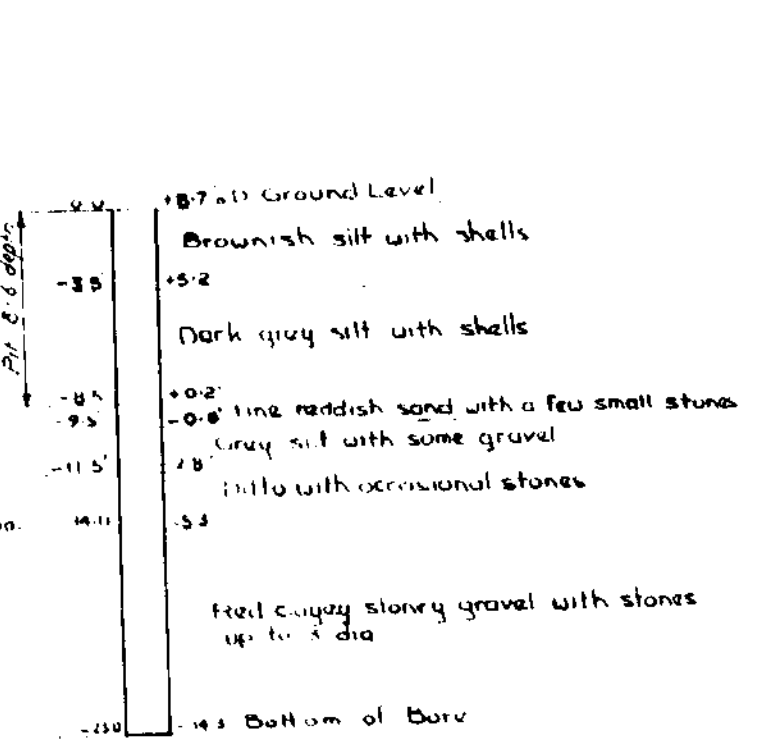 +8.7 Ground Level
Brownish silt with shells
Pit 8.6 depth
-3.5 +5.2
Dark grey silt with shells
-8.5 +0.2'
-9.5 -0.8' Fine reddish sand with a few small stones
Grey silt with some gravel
-11.5' 2.8'
Ditto with occasional stones
Red clayey stoney gravel with stones
up to dia
-23.0 -14.3 Bottom of Bore